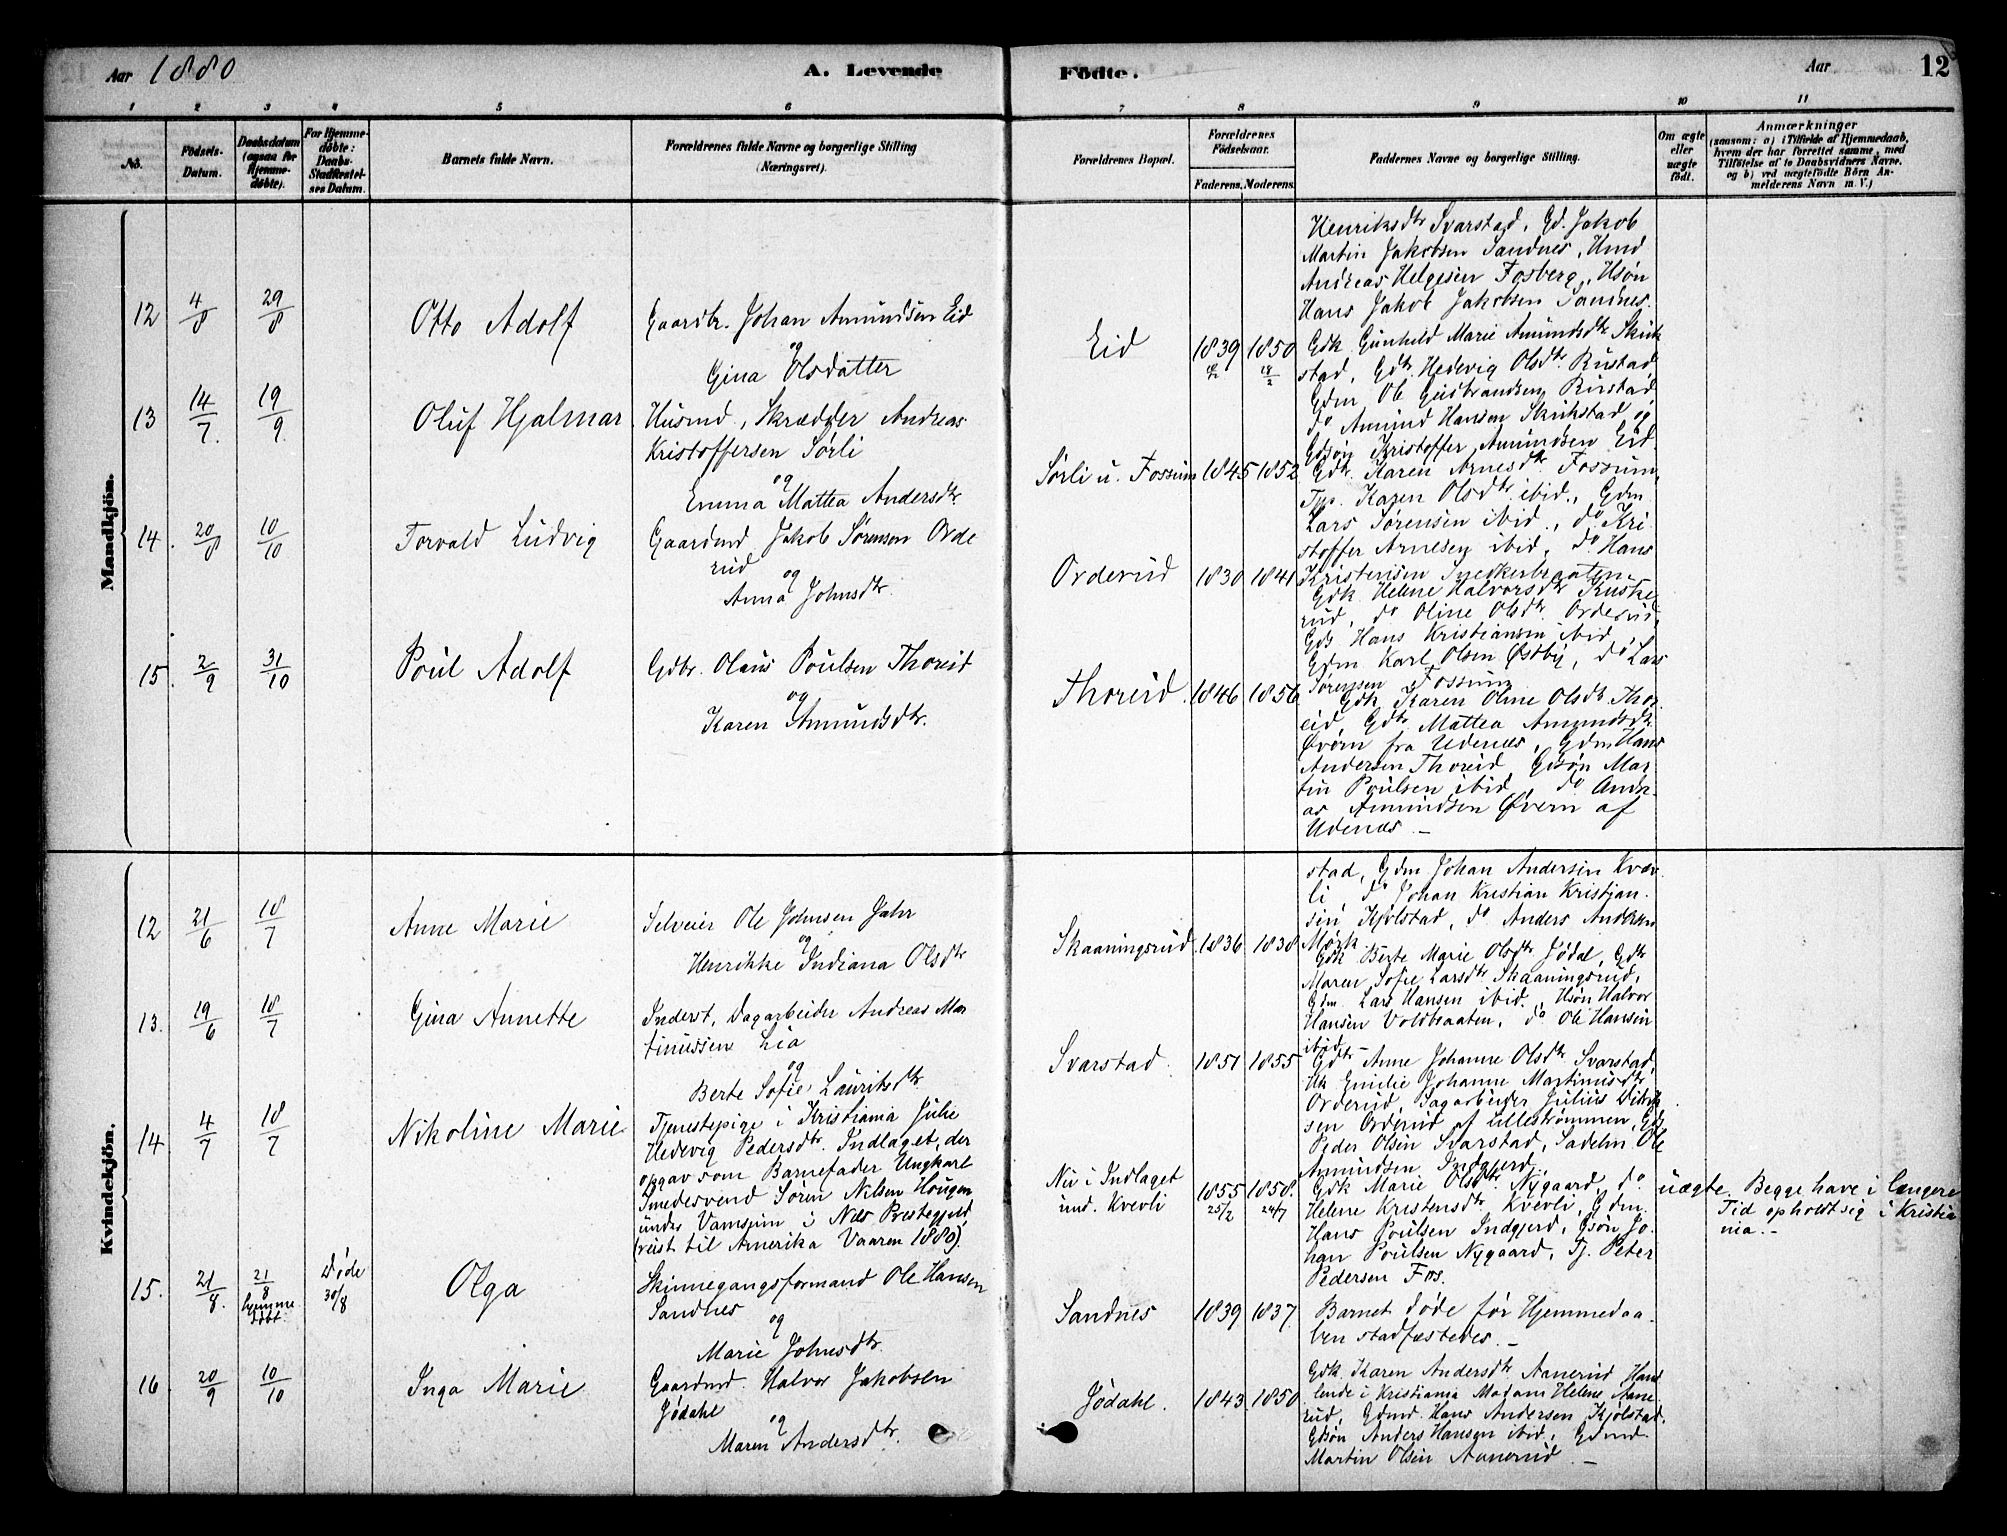 Aar 1880
A. Levende
Födte.
Aar
12
1 2 3 4 5 6 7 8 9 10 11
No.
Födsels-
Datum.
Daabsdatum
(ogsaa for
Hjemme-
døbte).
For Hjemme-
døbte:
Daabs-
Stadfæstel-
ses Datum.
Barnets fulde Navn.
Forældrenes fulde Navne og borgerlige Stilling
(Næringsvei).
Forældrenes Bopæl.
Forældrenes
Födselsaar.
Faderens. Moderens.
Faddernes Navne og borgerlige Stilling.
Om ægte
eller
uægte
födt.
Anmærkninger
(saasom: a) i Tilfælde af Hjemmedaab,
hvem der har forrettet samme, med
Tilföielse af to Daabsvidners Navne.
og b) ved uægtefödte Börn An-
melderens Navn m. V.)
Mandkjön.
Henriksdtr Svarstad, Gd. Jakob
Martin Jakobsen Sandnes, Hmd
Andreas Helgesen Fosberg, Hsøn
Hans Jakob Jakobsen Sandnes.
12 4/8 29/8 Otto Adolf
Gaardbr. Johan Amundsen Eid
og
Gina Olsdatter
Eid 1839 1850 18/2
Gdk Gunhild Marie Amundsdtr Skrik
stad, Gdtr. Hedevig Olsdtr. Rustad
Gdm Ole Gudbrandsen Rustad
do Amund Hansen Skrikstad og
Gdsøn Kristoffer Amundsen Eid.
13 14/7. 19/9. Oluf Hjalmar
Husmd, Skrædder Andreas
Kristoffersen Sørli
og
Emma Mattea Andersdtr
Sørli u. Fossum 1845 1852
Gdk. Karen Arnesdtr. Fossum,
Tp. Karen Olsdtr ibid., Gdm
Lars Sørensen ibid., do Kri
stoffer Arnesen ibid, do. Hans
Kristensen Snekkerbraaten
14. 20/8 10/10 Torvald Ludvig
Gaardmd Jakob Sørensen Orde
rud
og
Anna Johnsdtr.
Orderud 1830 1841
Gdk. Helene Halvorsdtr Kuske
rud, do Oline Olsdtr. Orderud,
Gds Hans Kristiansen ibid
Gdm Karl Olsen Østby, do Lars
Sørensen Fossum
15. 2/9 31/10 Poul Adolf
Gdbr. Olaus Poulsen Thoreid
og
Karen Amundsdtr.
Thoreid. 1846 1856
Gdk Karen Oline Olsdtr Thor
eid, Gdtr. Mattea Amundsdtr.
Øvern fra Udenæs, Gdm Hans
Andersen Thoreid, Gdsøn Mar
tin Poulsen ibid, do Andr
as Amundsen Øvern af
Udenæs. –
Kvindekjön.
stad, Gdm Johan Andersen Kvæv
li, do Johan Kristian Kristjan.
sen Kjølstad, do Anders Andersen
Mørk
12 21/6 18/7 Anne Marie
Selveier Ole Johnsen Jahr
og
Henrikke Indiana Olsdtr
Skaaningsrud. 1836 1838
Gdk Berte Marie Olsdtr Jødal, Gdtr
Maren Sofie Larsdtr. Skaaningsrud,
Gdm. Lars Hansen ibid., Hsøn Halvor
Hansen Voldbraaten, do Ole Hansen
ibid –
13. 19/6 18/7 Gina Annette
Inderst, Dagarbeider Andreas Mar
tinussen Lia
og
Berte Sofie Lauritsdtr
Svarstad. 1851 1855
Gdtr Anne Johanne Olsdtr Svarstad,
Uk Emilie Johanne Martinusdtr
Orderud, Dagarbeider Julius Didrik
sen Orderud af Lillestrømmen, Gds
Peder Olsen Svarstad, Sadelm Ole
Amundsen Indgjerd.
14 4/7 18/7 Nikoline Marie
Tjenestepige i Kristiania Julie
Hedevig Pedersdtr. Indlaget, der
opgav som Barnefader Ungkarl
Smedesvend Søren Nilsen Hougen
under Vamsjum i Næs Prestegjeld,
(reist til Amerika Vaaren 1880).
Nu i Indlaget
und. Kvevli
1855 25/2 1858. 24/7
Gdk Marie Olsdtr. Nygaard, do
Helene Kristensdtr Kvevli, Gdm.
Hans Poulsen Indgjerd, Gsøn Jo
han Poulsen Nygaard, Tj. Peter
Pedersen Fos.
uægte. Begge have i længere
Tid opholdt sig i Kristia
nia. –
15. 21/8. 21/8 hjemme
døbt Døde
30/8 Olga
Skinnegangsformand Ole Hansen
Sandnes
og
Marie Johnsdtr.
Sandnes 1839 1837.
Barnet døde før Hjemmedaa-
ben stadfæstedes. –
16 20/9 10/10 Inga Marie
Gaardmd. Halvor Jakobsen
Jødahl
og
Maren Andersdtr.
Jødahl. 1843. 1850
Gdk. Karen Andersdtr. Aanerud, Hand
lende i Kristiania Madam Helene Aane
rud, Gdmd. Hans Andersen Kjølstad,
Gdsøn Anders Hansen ibid, Gdmd.
Martin Olsen Aanerud. –